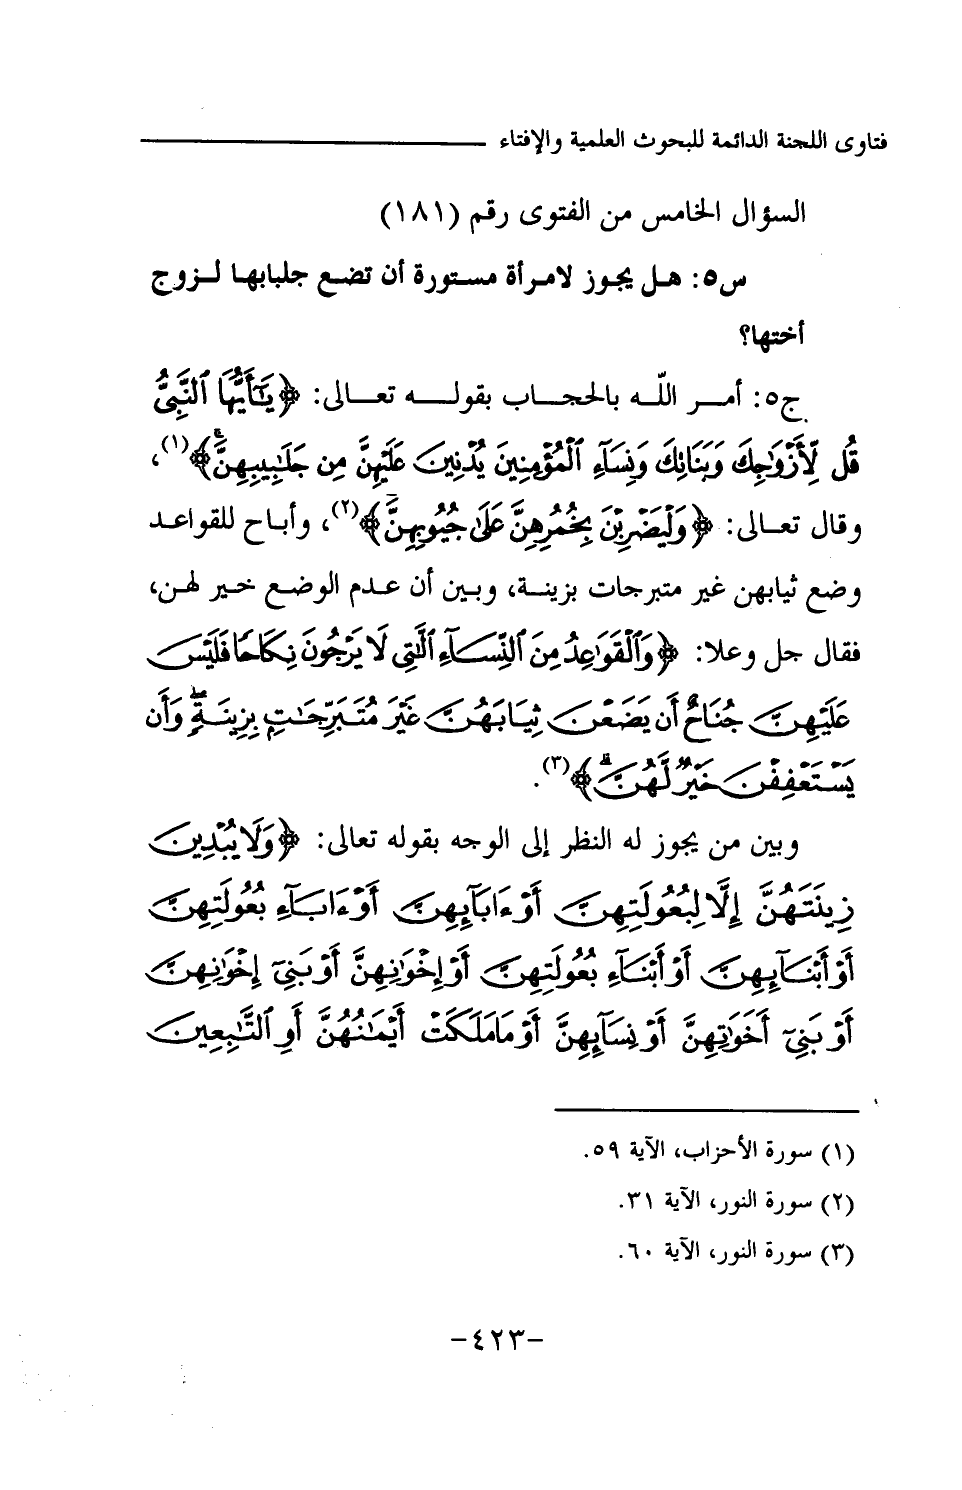 فتاوى اللجنة الدائمة للبحوث العلمية والإفتاء
السؤال الخامس من الفتوى رقم (١٨١)
س٥: هل يجوز لامرأة مستورة أن تضع جلبابها لزوج
أختها؟
ج٥: أمر الله بالحجاب بقوله تعالى: ﴿يَٰٓأَيُّهَا ٱلنَّبِىُّ
قُل لِّأَزْوَٰجِكَ وَبَنَاتِكَ وَنِسَآءِ ٱلْمُؤْمِنِينَ يُدْنِينَ عَلَيْهِنَّ مِن جَلَٰبِيبِهِنَّ ۚ﴾(١)،
وقال تعالى: ﴿وَلْيَضْرِبْنَ بِخُمُرِهِنَّ عَلَىٰ جُيُوبِهِنَّ ۖ﴾(٢)، وأباح للقواعد
وضع ثيابهن غير متبرجات بزينة، وبين أن عدم الوضع خير لهن،
فقال جل وعلا: ﴿وَٱلْقَوَٰعِدُ مِنَ ٱلنِّسَآءِ ٱلَّٰتِى لَا يَرْجُونَ نِكَاحًا فَلَيْسَ
عَلَيْهِنَّ جُنَاحٌ أَن يَضَعْنَ ثِيَابَهُنَّ غَيْرَ مُتَبَرِّجَٰتٍۭ بِزِينَةٍ ۖ وَأَن
يَسْتَعْفِفْنَ خَيْرٌ لَّهُنَّ ۗ﴾(٣).
وبين من يجوز له النظر إلى الوجه بقوله تعالى: ﴿وَلَا يُبْدِينَ
زِينَتَهُنَّ إِلَّا لِبُعُولَتِهِنَّ أَوْ ءَابَآئِهِنَّ أَوْ ءَابَآءِ بُعُولَتِهِنَّ
أَوْ أَبْنَآئِهِنَّ أَوْ أَبْنَآءِ بُعُولَتِهِنَّ أَوْ إِخْوَٰنِهِنَّ أَوْ بَنِىٓ إِخْوَٰنِهِنَّ
أَوْ بَنِىٓ أَخَوَٰتِهِنَّ أَوْ نِسَآئِهِنَّ أَوْ مَا مَلَكَتْ أَيْمَٰنُهُنَّ أَوِ ٱلتَّٰبِعِينَ
(١) سورة الأحزاب، الآية ٥٩.
(٢) سورة النور، الآية ٣١.
(٣) سورة النور، الآية ٦٠.
-٤٢٣-